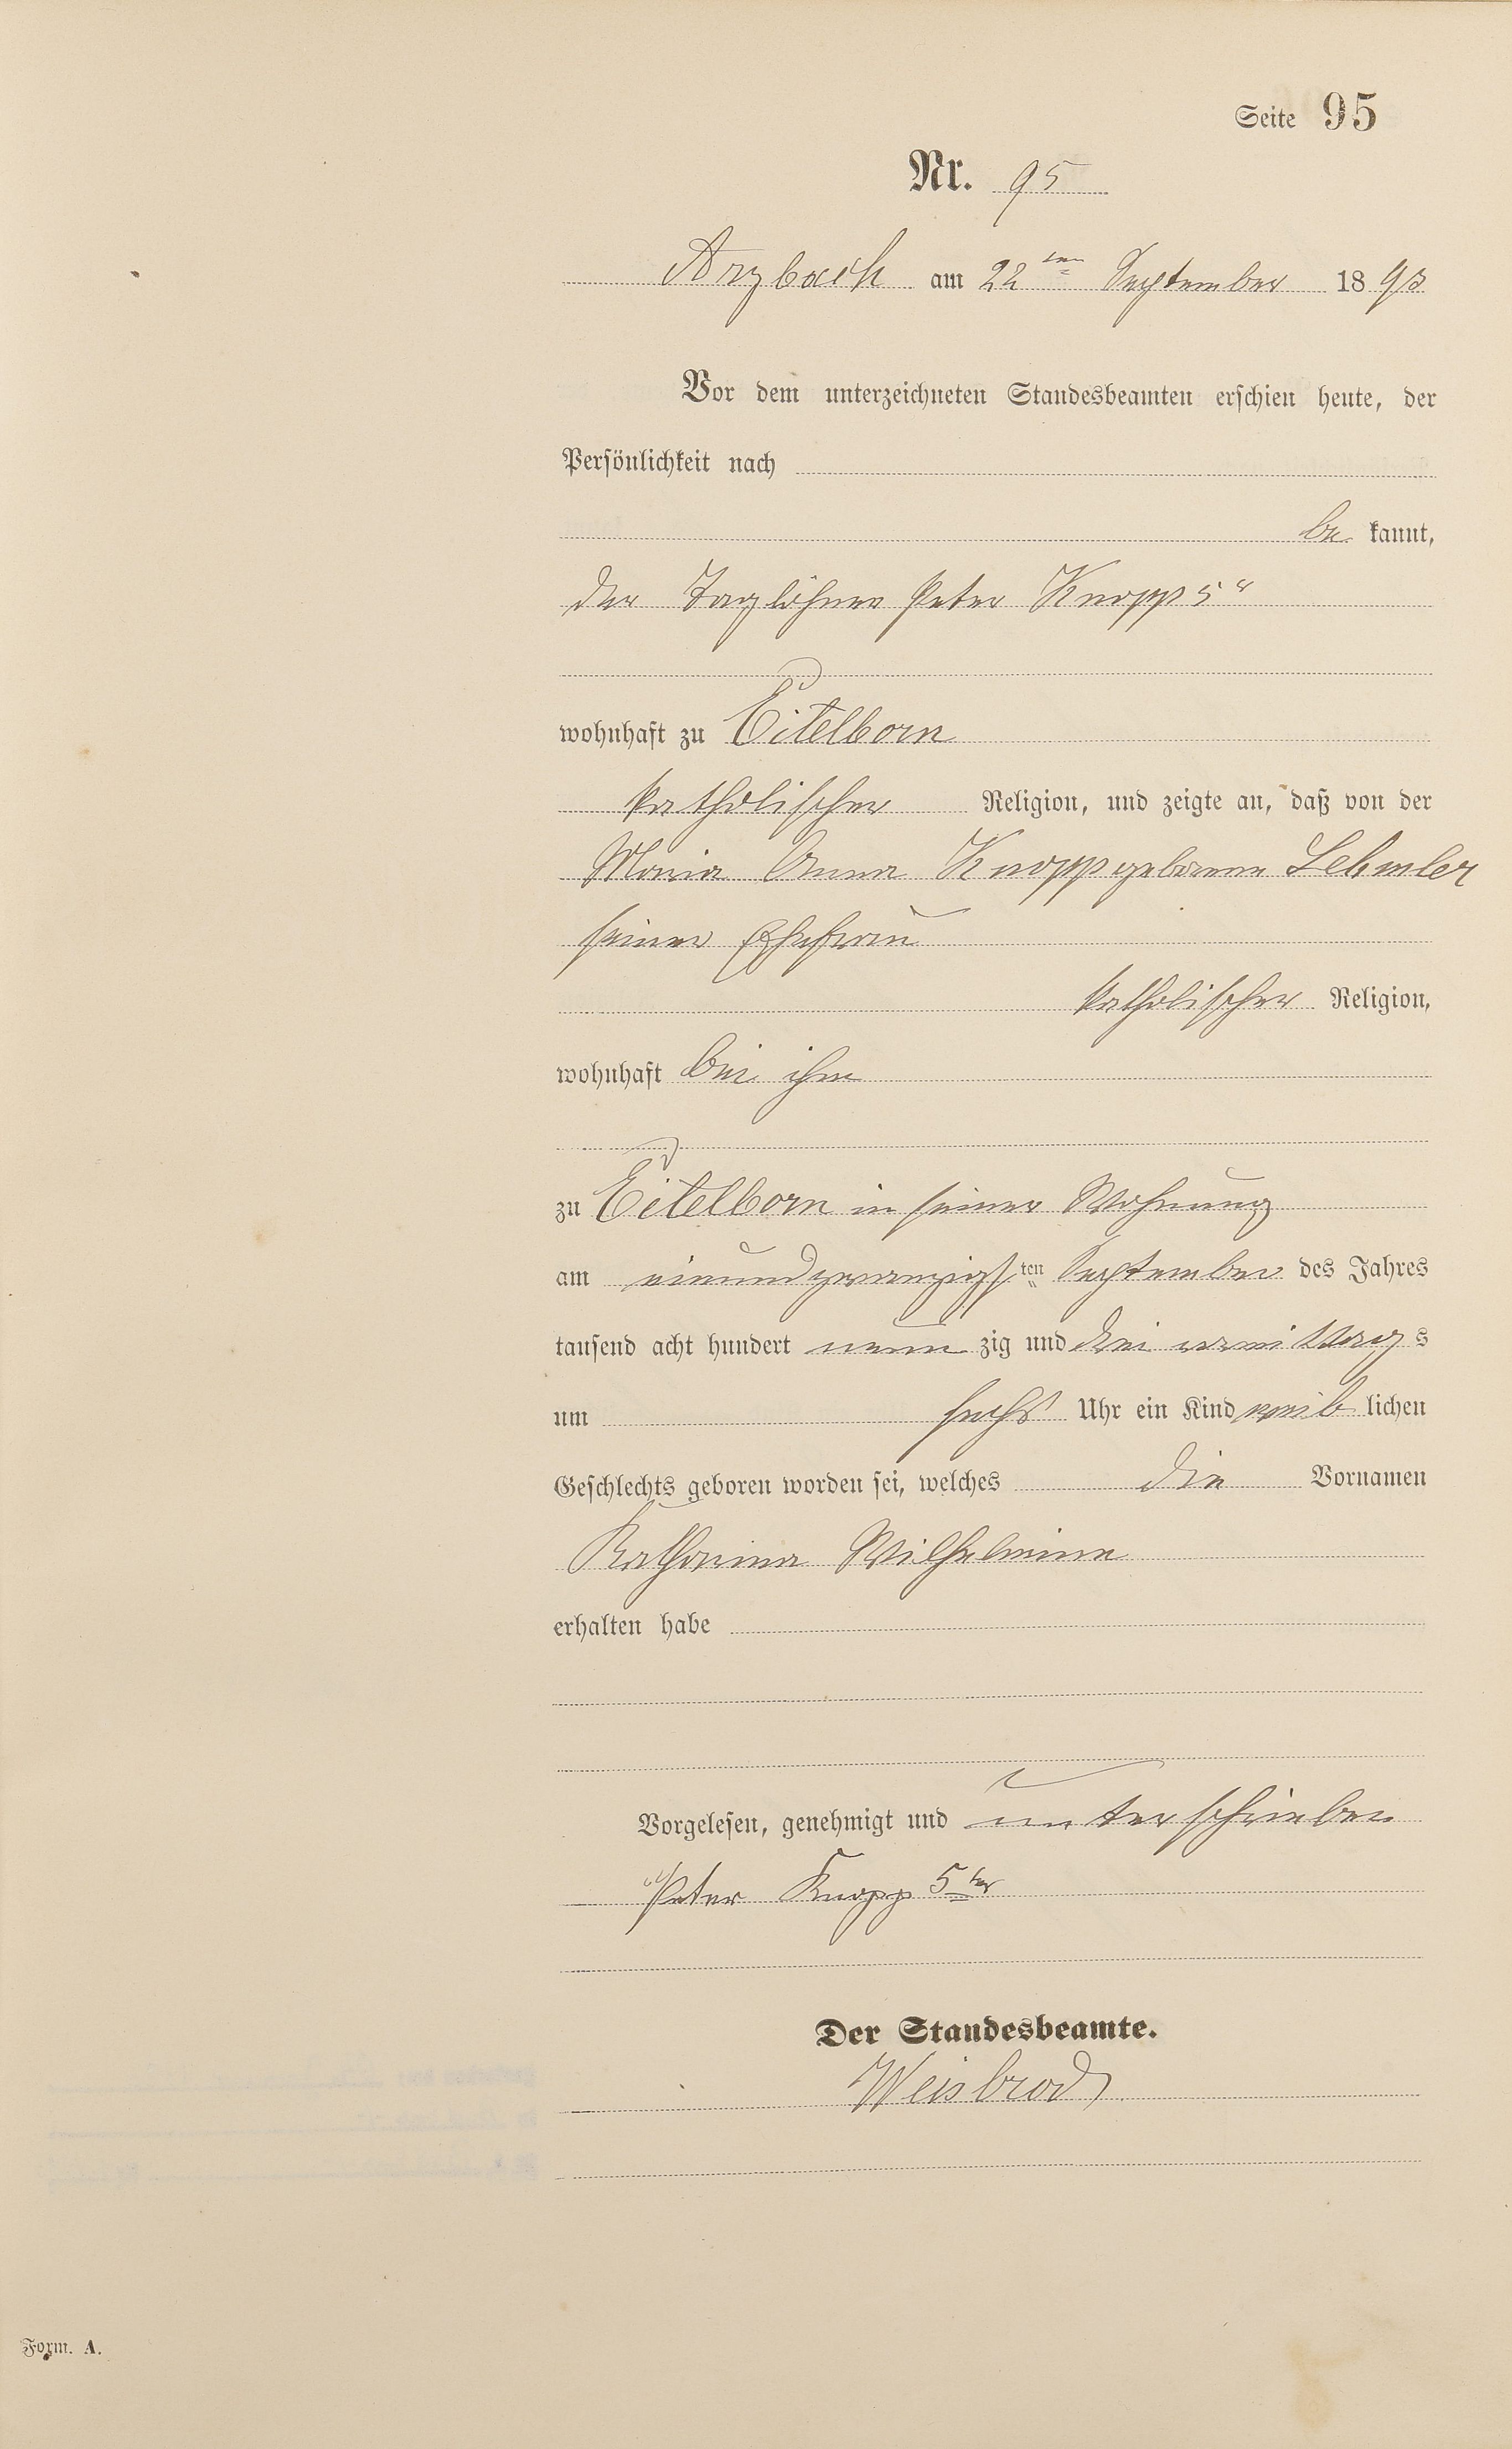 Seite 95
Nr. 95
Arzbach am 22ten September 1893
Vor dem unterzeichneten Standesbeamten erschien heute, der
Persönlichkeit nach
be kannt,
der Taglöhner Peter Knopp 5r
wohnhaft zu Eitelborn
katholischer Religion, und zeigte an, daß von der
Maria Anna Knopp geborene Lehmler
seiner Ehefrau
katholischer Religion,
wohnhaft bei ihm
zu Eitelborn in seiner Wohnung
am einundzwanzigsten September des Jahres
tausend acht hundert neun zig und drei vormittags
um sechs Uhr ein Kind weib lichen
Geschlechts geboren worden sei, welches die Vornamen
Katharina Wilhelmine
erhalten habe
Vorgelesen, genehmigt und unterschrieben
Peter Knopp 5ter
Der Standesbeamte.
Weisbrod
Form. A.